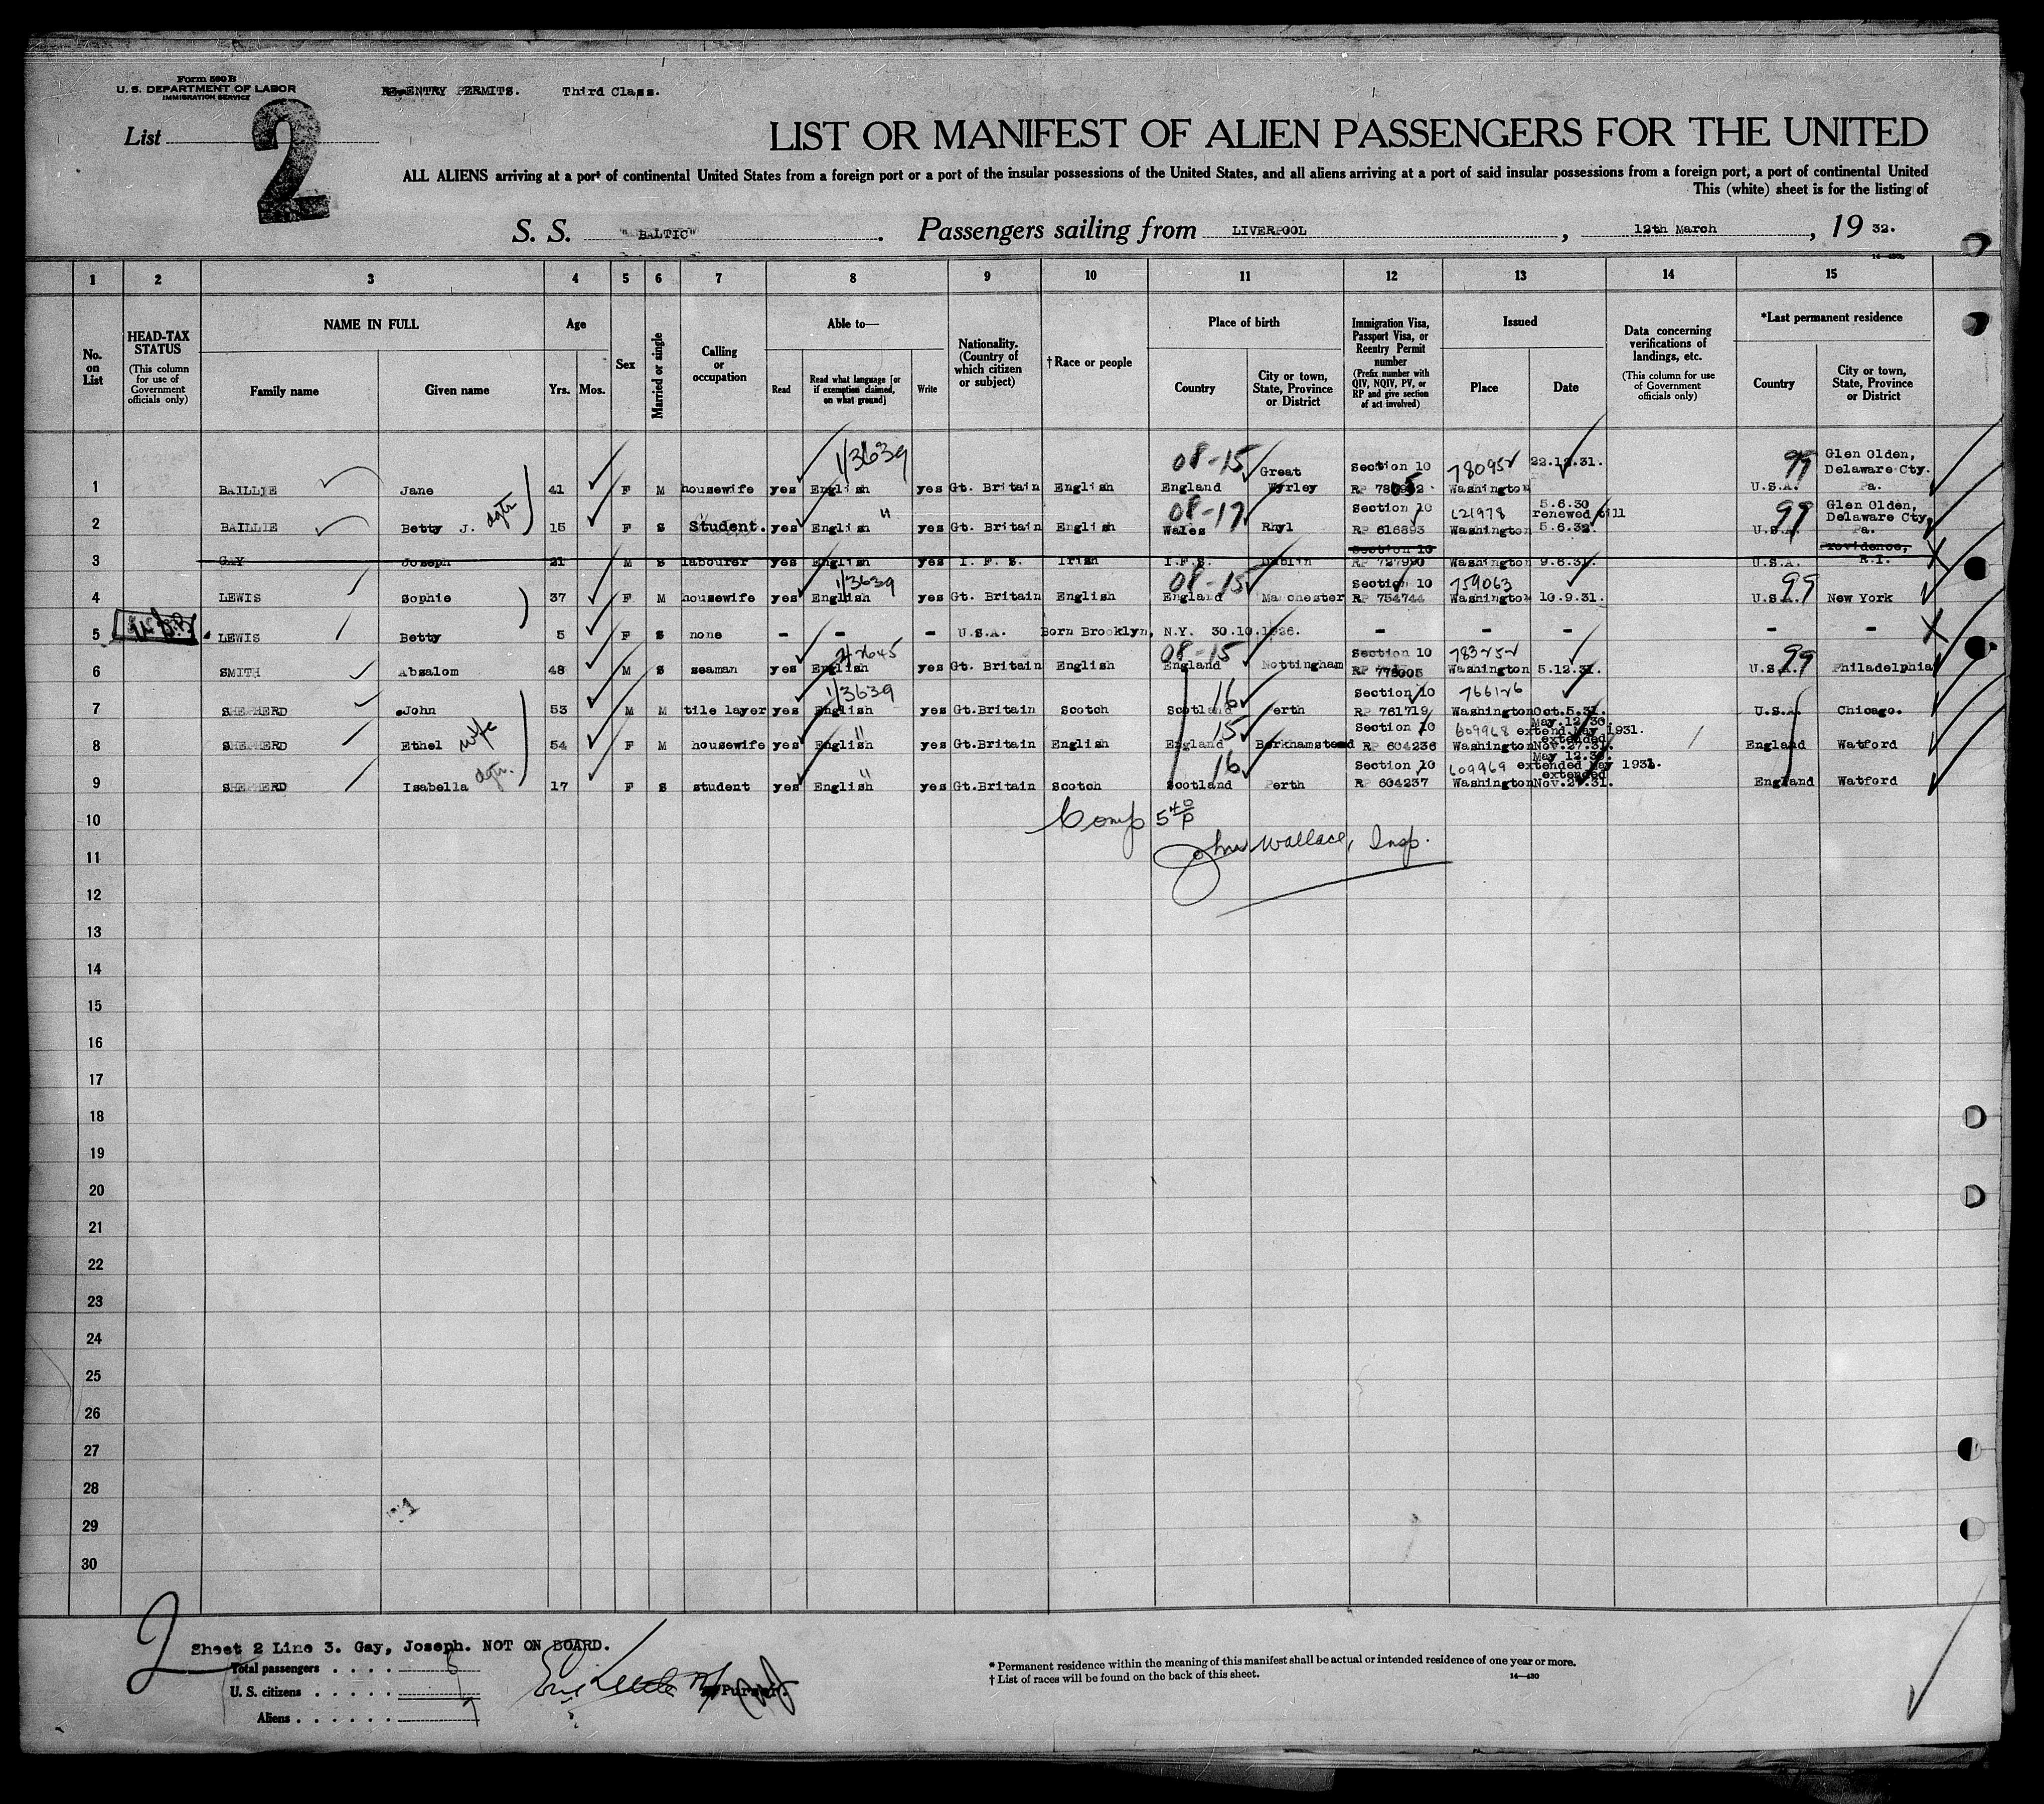 Form 500 B
U. S. DEPARTMENT OF LABOR
IMMIGRATION SERVICE
RE-ENTRY PERMITS. Third Class.
List 2
LIST OR MANIFEST OF ALIEN PASSENGERS FOR THE UNITED
ALL ALIENS arriving at a port of continental United States from a foreign port or a port of the insular possessions of the United States, and all aliens arriving at a port of said insular possessions from a foreign port, a port of continental United
This (white) sheet is for the listing of
S. S. "BALTIC". Passengers sailing from LIVERPOOL, 12th March, 19 32.
1 2 3 4 5 6 7 8 9 10 11 12 13 14 15
No. on List
HEAD-TAX STATUS
(This column for use of Government officials only)
NAME IN FULL
Family name Given name
Age
Yrs. Mos.
Sex
Married or single
Calling or occupation
Able to—
Read Read what language [or if exemption claimed, on what ground] Write
Nationality. (Country of which citizen or subject)
†Race or people
Place of birth
Country City or town, State, Province or District
Immigration Visa, Passport Visa, or Reentry Permit number
(Prefix number with QIV, NQIV, PV, or RP and give section of act involved)
Issued
Place Date
Data concerning verifications of landings, etc.
(This column for use of Government officials only)
*Last permanent residence
Country City or town, State, Province or District
1/3639 08-15 Great Section 10 780952 22.12.31. 99 Glen Olden, Delaware Cty.
1 BAILLIE Jane 41 F M housewife yes English yes Gt. Britain English England Wyrley RP Washington U.S.A. Pa.
dgtr " 08-17 Section 10 621978 5.6.30 renewed till 99 Glen Olden, Delaware Cty
2 BAILLIE Betty J. 15 F S Student. yes English yes Gt. Britain English Wales Rhyl RP 616893 Washington 5.6.32. U.S.A. Pa.
Section 10 Providence,
3 GAY Joseph 21 M S labourer yes English yes I. F. S. Irish I.F.S. Dublin RP 727990 Washington 9.6.31. U.S.A. R.I.
1/3639 08-15 Section 10 759063 99
4 LEWIS Sophie 37 F M housewife yes English yes Gt. Britain English England Manchester RP 754744 Washington 10.9.31. U.S.A. New York
5 LEWIS Betty 5 F S none - - - U.S.A. Born Brooklyn, N.Y. 30.10.1926. - - - - -
08-15 Section 10 783252 99
6 SMITH Absalom 48 M S seaman yes English yes Gt. Britain English England Nottingham RP 778005 Washington 5.12.31. U.S.A. Philadelphia
1/3639 16 Section 10 766126
7 SHEPHERD John 53 M M tile layer yes English yes Gt.Britain Scotch Scotland Perth RP 761719 Washington Oct.5.31. U.S.A. Chicago.
wife " 15 Section 10 609968 May.12.30. extend May 1931. extended
8 SHEPHERD Ethel 54 F M housewife yes English yes Gt.Britain English England Berkhamstead RP 604236 Washington Nov.27.31. England Watford
dgtr. " 16 Section 10 609969 May 12.30. extended May 1931. extended
9 SHEPHERD Isabella 17 F S student yes English yes Gt.Britain Scotch Scotland Perth RP 604237 Washington Nov.27.31. England Watford
10 Comp 5 40/P
11 John Wallace, Insp.
12
13
14
15
16
17
18
19
20
21
22
23
24
25
26
27
28
29
30
2
Sheet 2 Line 3. Gay, Joseph. NOT ON BOARD.
Total passengers . . . . 8
U. S. citizens . . . . . 1
Aliens . . . . . . 7
Purser.
* Permanent residence within the meaning of this manifest shall be actual or intended residence of one year or more.
† List of races will be found on the back of this sheet. 14—430